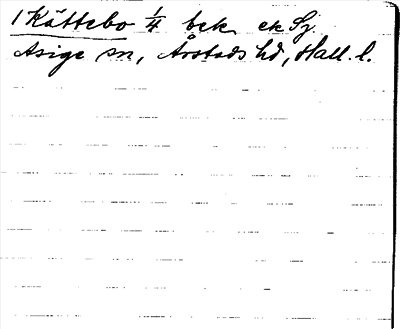 1 Kättebo 1/4 bek. ek Sj.
Asige sn, Årstads hd, Hall. l.